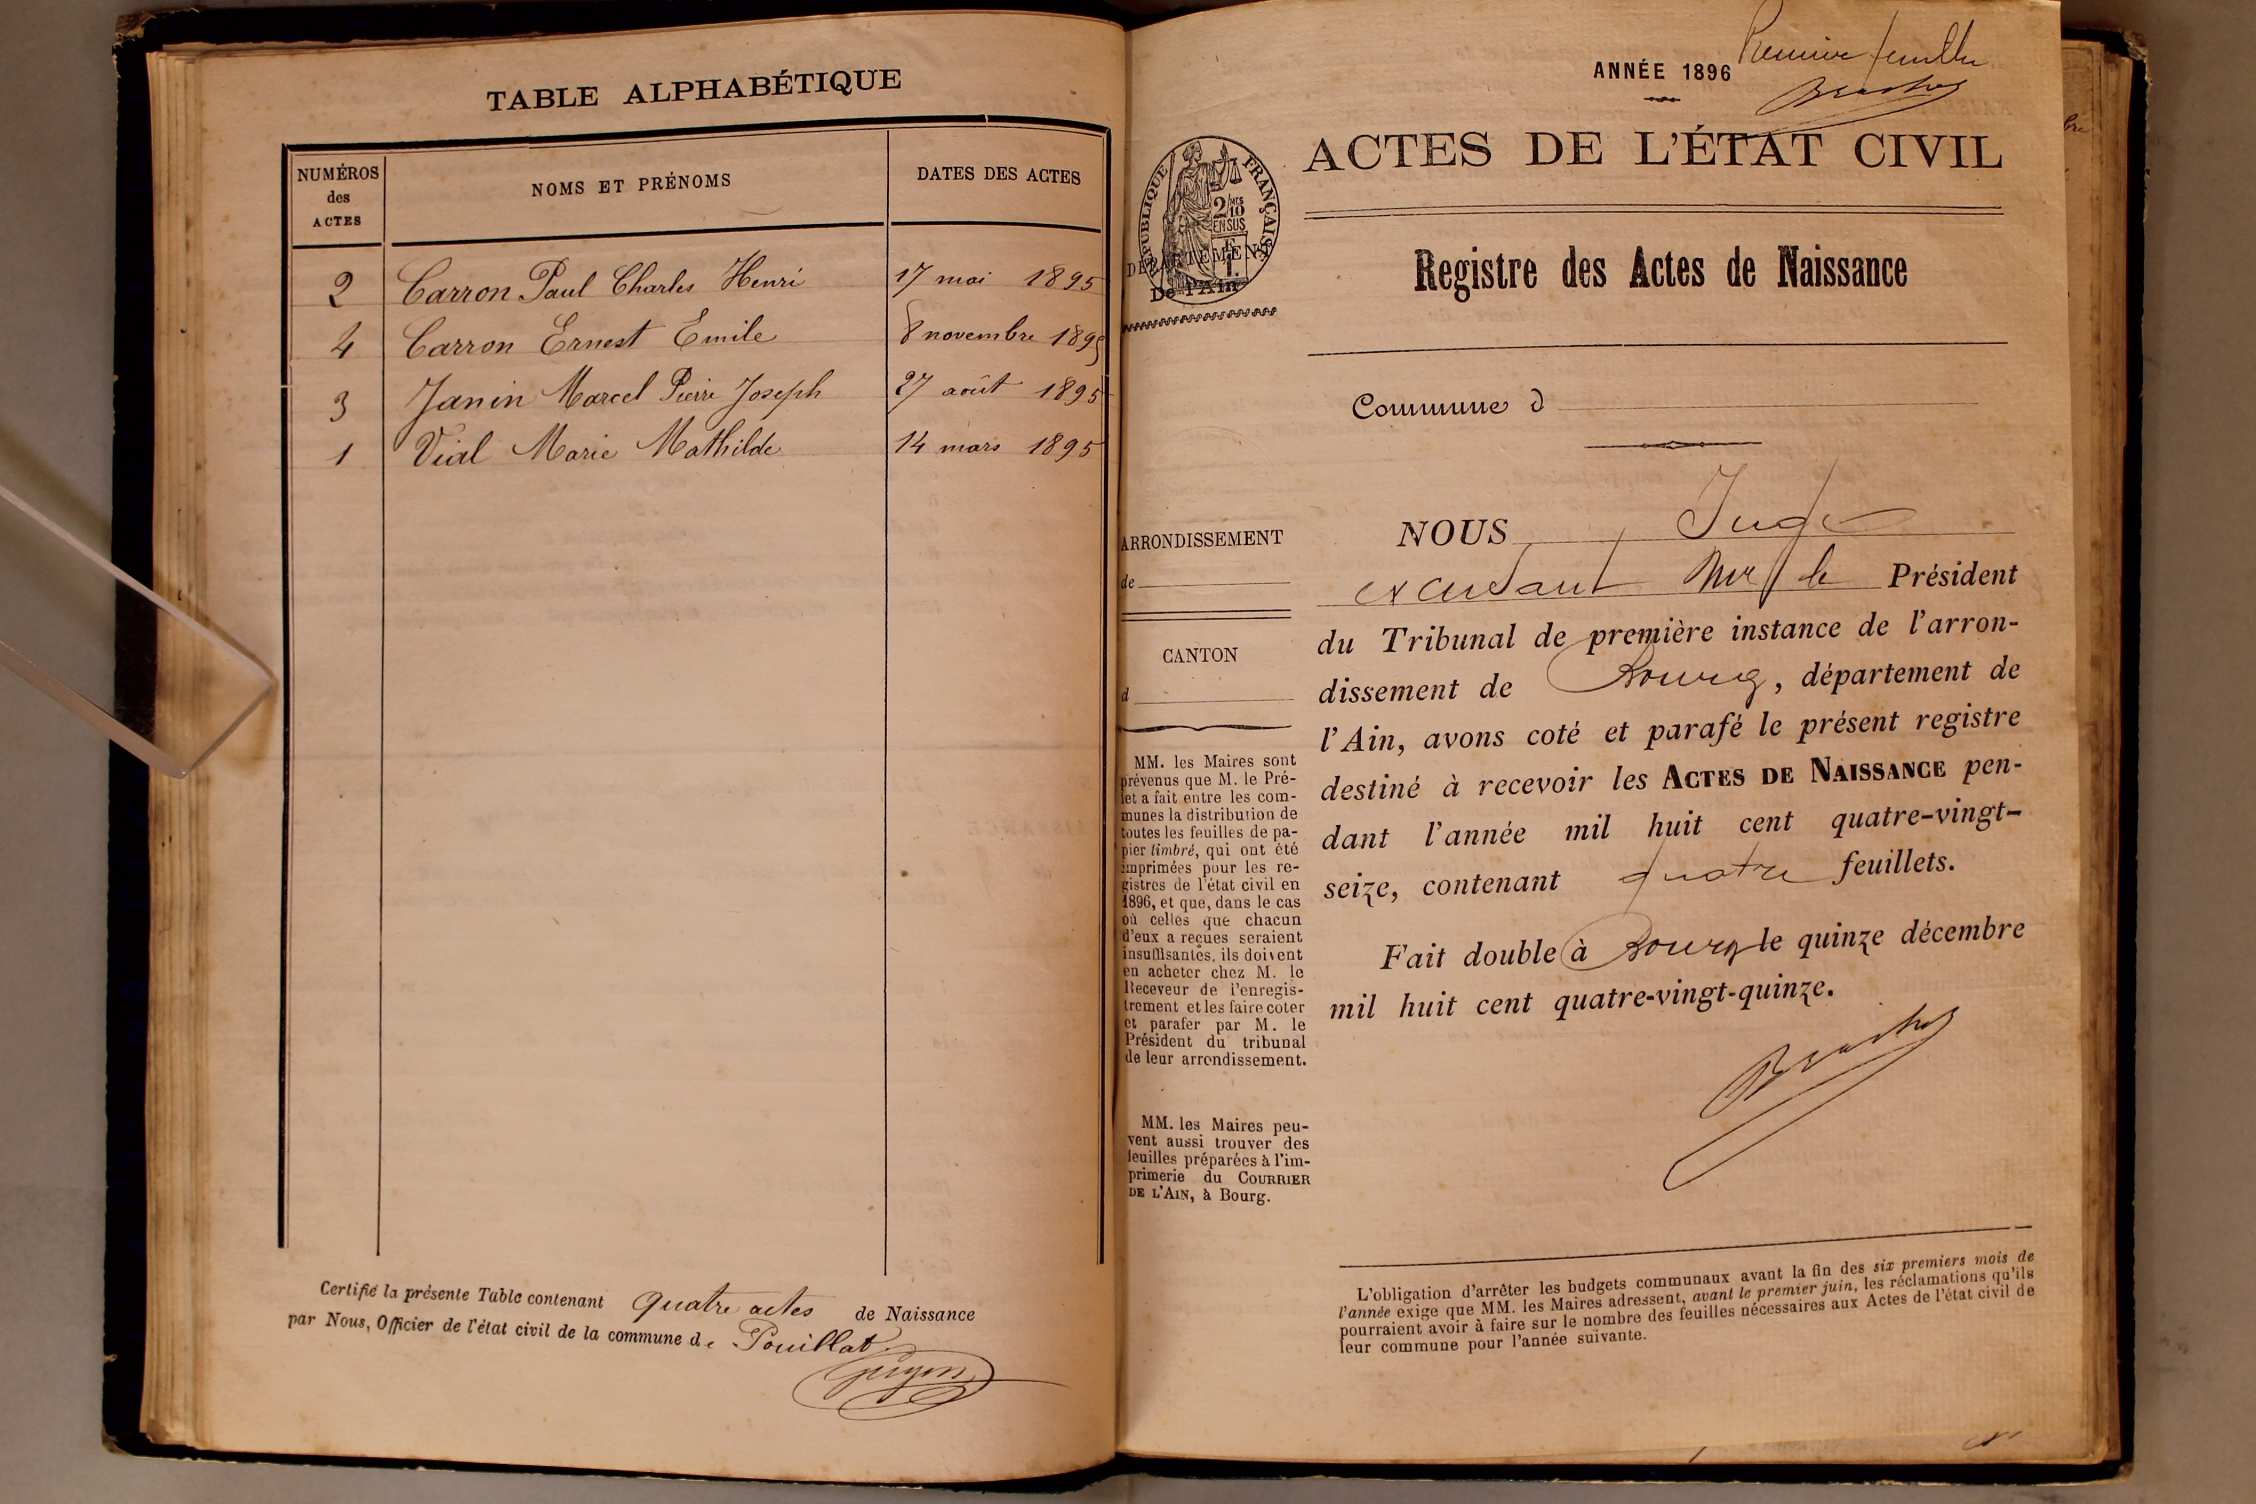 TABLE ALPHABÉTIQUE
NUMÉROS des ACTES
NOMS ET PRÉNOMS
DATES DES ACTES
2 Carron Paul Charles Henri 17 mai 1895
4 Carron Ernest Emile 8 novembre 1895
3 Janin Marcel Pierre Joseph 27 août 1895
1 Vial Marie Mathilde 14 mars 1895
Certifié la présente Table contenant quatre actes de Naissance
par Nous, Officier de l'état civil de la commune de Pouillat
Guyon
Premier feuillet
ANNÉE 1896
ACTES DE L'ÉTAT CIVIL
RÉPUBLIQUE FRANÇAISE
2/10 EN SUS
DÉPARTEMENT
De l'Ain
Registre des Actes de Naissance
Commune d
ARRONDISSEMENT
de
CANTON
d
MM. les Maires sont
prévenus que M. le Pré-
fet a fait entre les com-
munes la distribution de
toutes les feuilles de pa-
pier timbré, qui ont été
imprimées pour les re-
gistres de l'état civil en
1896, et que, dans le cas
où celles que chacun
d'eux a reçues seraient
insuffisantes, ils doivent
en acheter chez M. le
Receveur de l'enregis-
trement et les faire coter
et parafer par M. le
Président du tribunal
de leur arrondissement.
MM. les Maires peu-
vent aussi trouver des
feuilles préparées à l'im-
primerie du COURRIER
DE L'AIN, à Bourg.
NOUS Juge
Mr le Président
du Tribunal de première instance de l'arron-
dissement de Bourg, département de
l'Ain, avons coté et parafé le présent registre
destiné à recevoir les ACTES DE NAISSANCE pen-
dant l'année mil huit cent quatre-vingt-
seize, contenant quatre feuillets.
Fait double à Bourg le quinze décembre
mil huit cent quatre-vingt-quinze.
L'obligation d'arrêter les budgets communaux avant la fin des six premiers mois de
l'année exige que MM. les Maires adressent, avant le premier juin, les réclamations qu'ils
pourraient avoir à faire sur le nombre des feuilles nécessaires aux Actes de l'état civil de
leur commune pour l'année suivante.